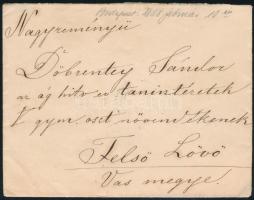 Budapest 1888 február 18 án
Nagyreményü
Döbrentey Sándor
az ág. hitv. ev. tanintézetek
I gym. oszt. növendékének
Felső Lövő
Vas megye.